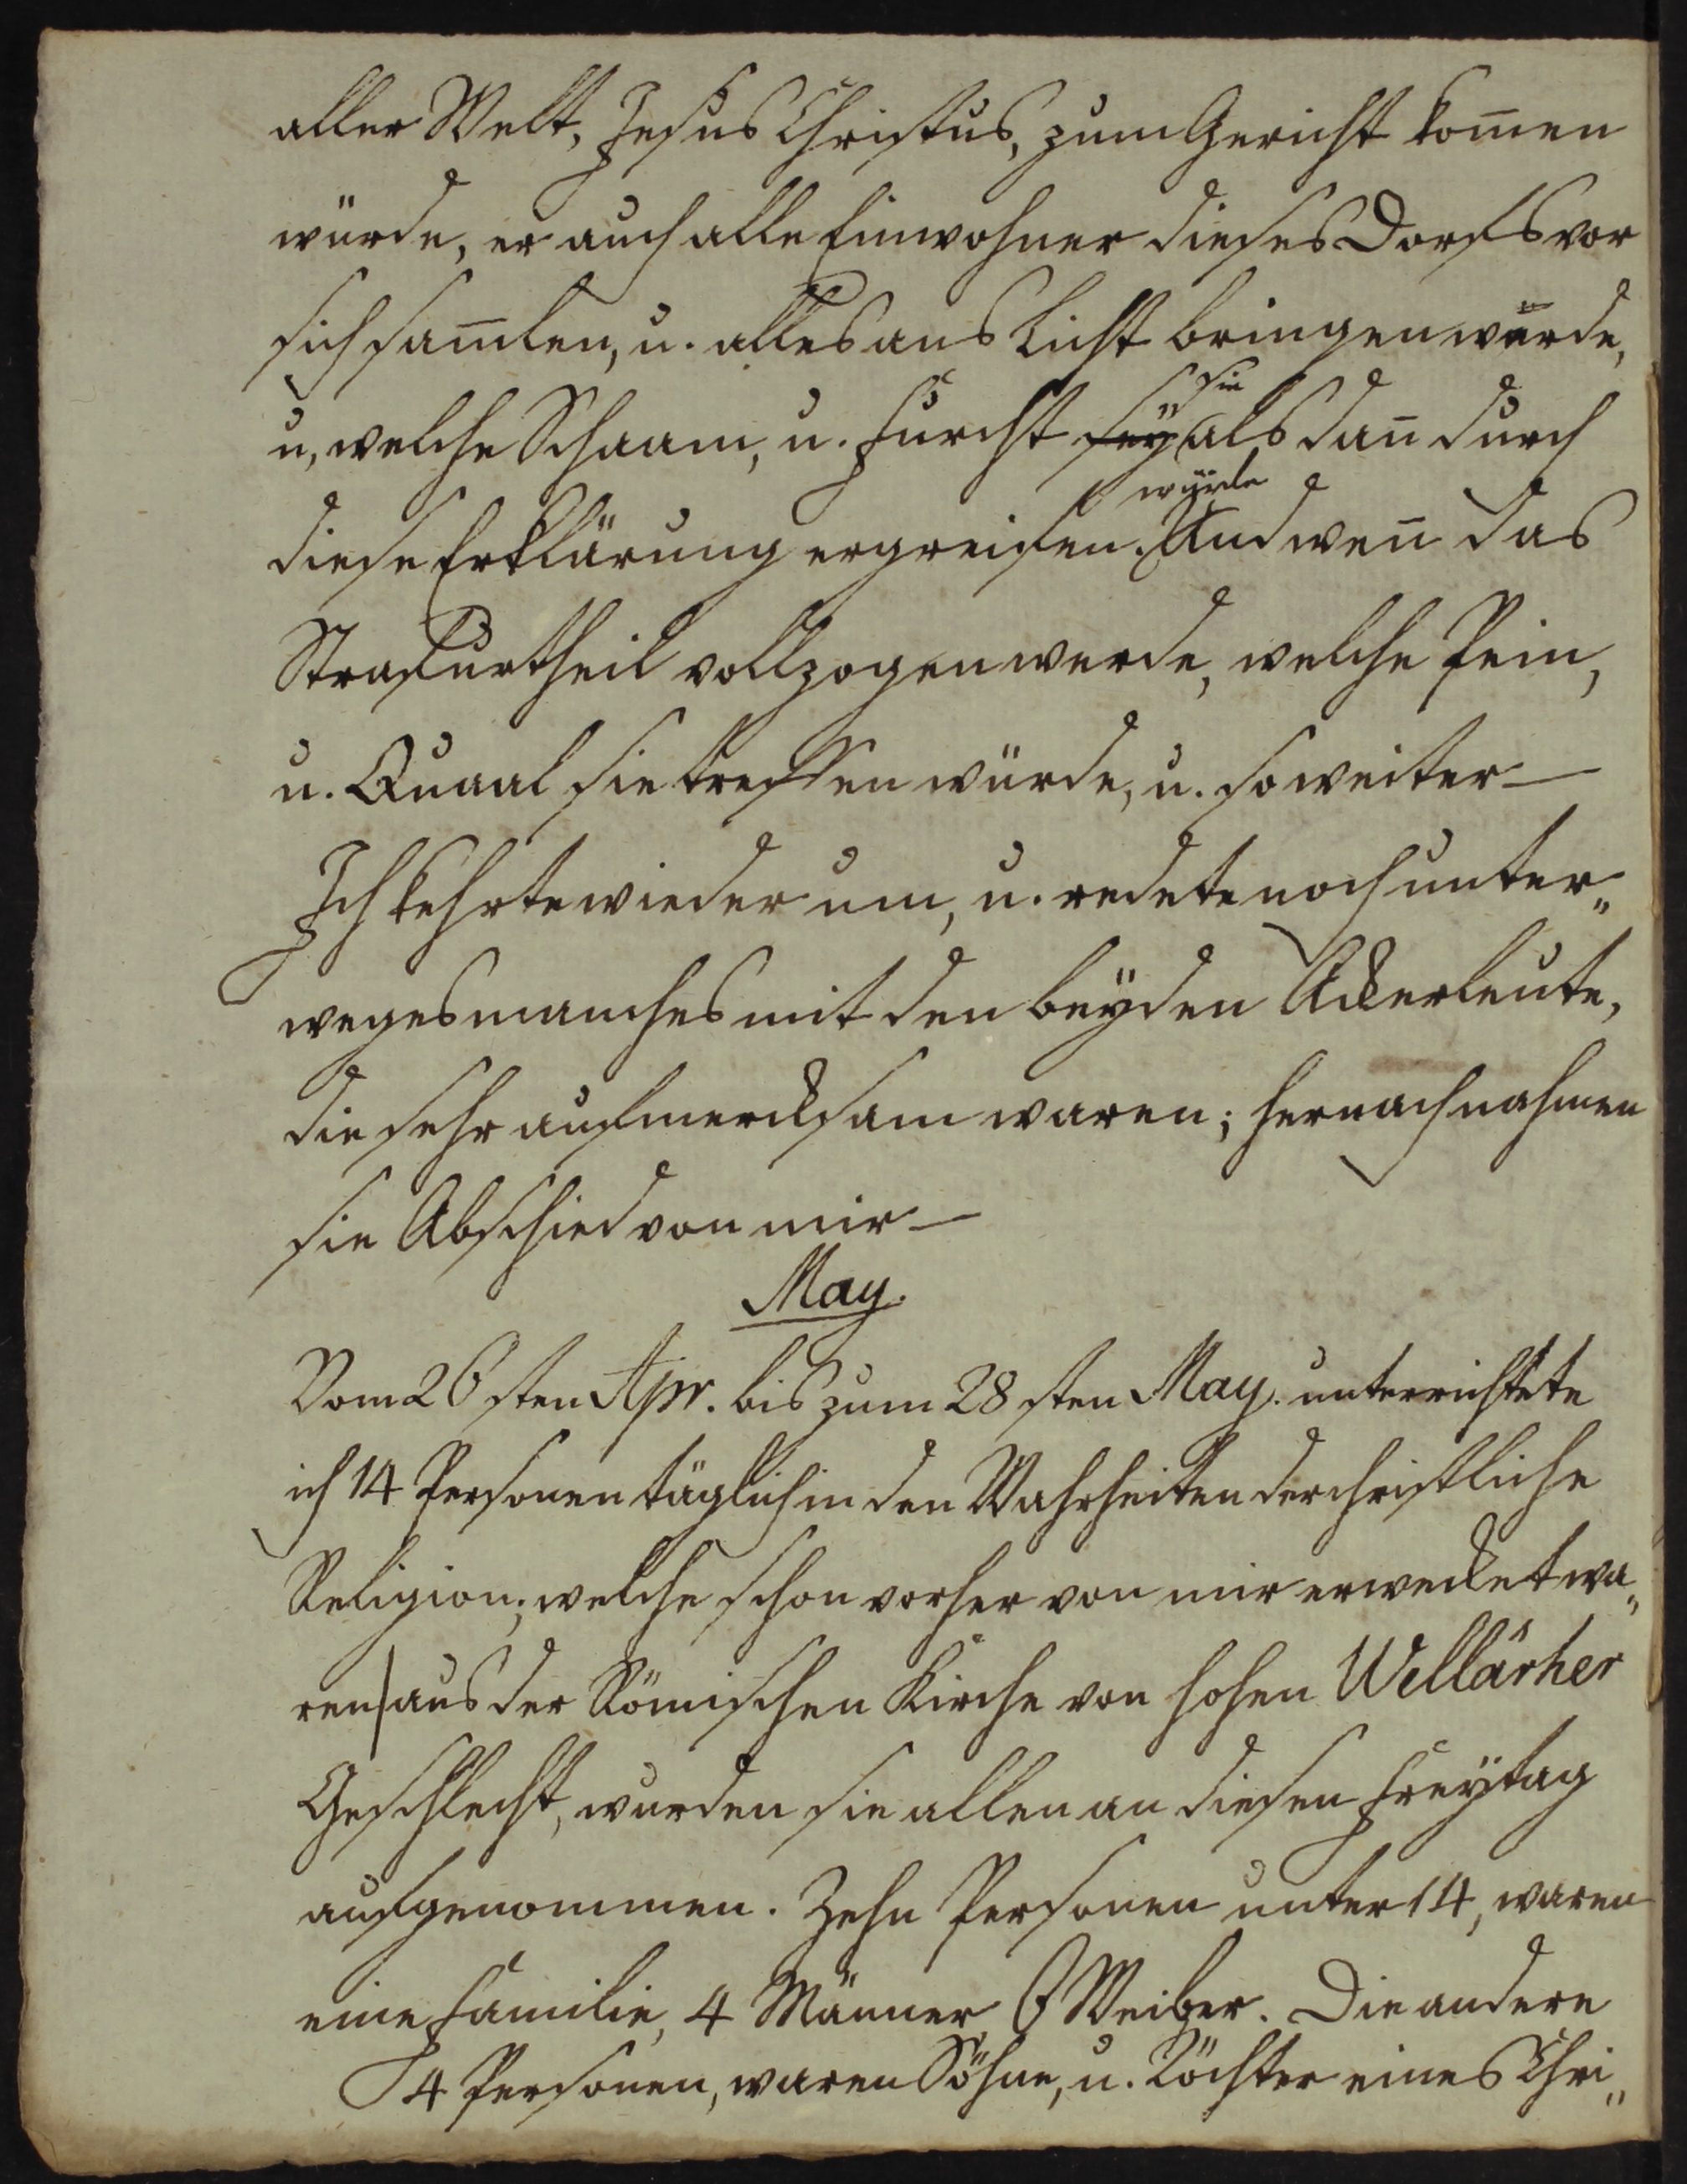 aller Welt, Jesus Christus, zum Gericht kom̅en
würde, er auch alle Einwohner dieses Dorfs vor
sich sam̅len, u. alles ans Licht bringen würde,
u, welche Schaam, u. Furcht sey sie als dan̅ durch
diese Erklärung ergreifen würde. Und wen̅ das
Strafurtheil vollzogen werde, welche Pein,
u. Quaal sie treffen würde, u. so weiter —
Ich kehrte wieder um, u. redete noch unter„
weges manches mit den beyden Ackerleute,
die sehr aufmercksam waren; hernach nahmen
sie Abschied von mir —
May.
Vom 26sten Apr. bis zum 28sten May. unterrichtete
ich 14 Personen täglich in den Wahrheiten der christliche
Religion; welche schon vorher von mir erwecket wa„
ren/ aus der Römischen Kirche von hohen Wellärher
Geschlecht, wurden sie allen an diesen Freytag
aufgenommen. Zehn Personen unter 14, waren
eine Familie, 4 Männer 6 Weiber. Die andere
4 Personen, waren Söhne, u. Töchter eines Chri„